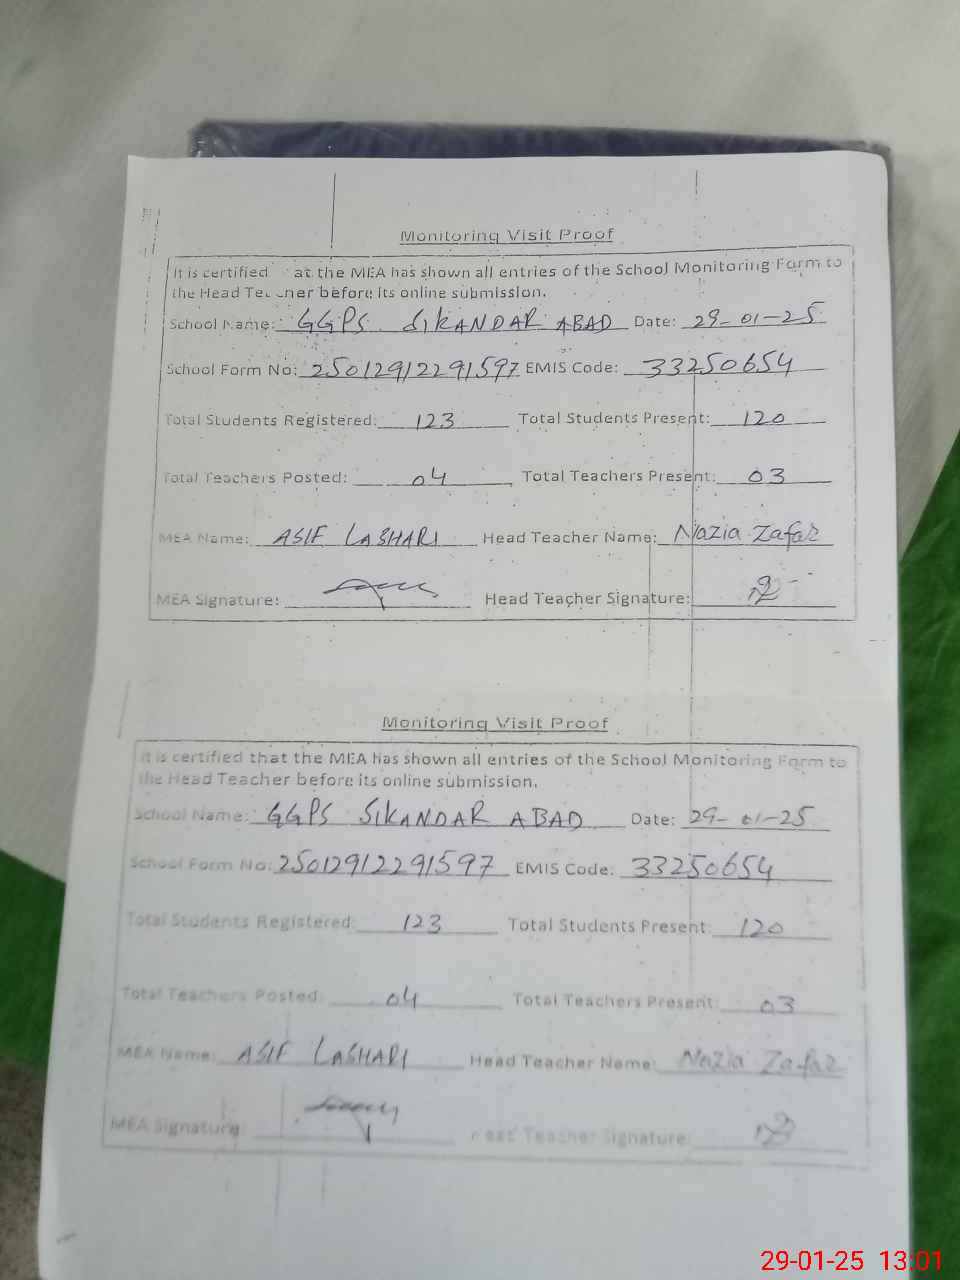 Monitoring Visit Proof
It is certified at the MEA has shown all entries of the School Monitoring Form to
the Head Teacher before its online submission.
School Name: GGPS SIKANDAR ABAD Date: 29-01-25
School Form No: 25012912291597 EMIS Code: 33250654
Total Students Registered: 123 Total Students Present: 120
Total Teachers Posted: 04 Total Teachers Present: 03
MEA Name: ASIF LASHARI Head Teacher Name: Nazia Zafar
MEA Signature: Head Teacher Signature:
Monitoring Visit Proof
It is certified that the MEA has shown all entries of the School Monitoring Form to
the Head Teacher before its online submission.
School Name: GGPS SIKANDAR ABAD Date: 29-01-25
School Form No: 25012912291597 EMIS Code: 33250654
Total Students Registered: 123 Total Students Present: 120
Total Teachers Posted: 04 Total Teachers Present: 03
MEA Name: ASIF LASHARI Head Teacher Name: Nazia Zafar
MEA Signature: Head Teacher Signature:
29-01-25 13:01